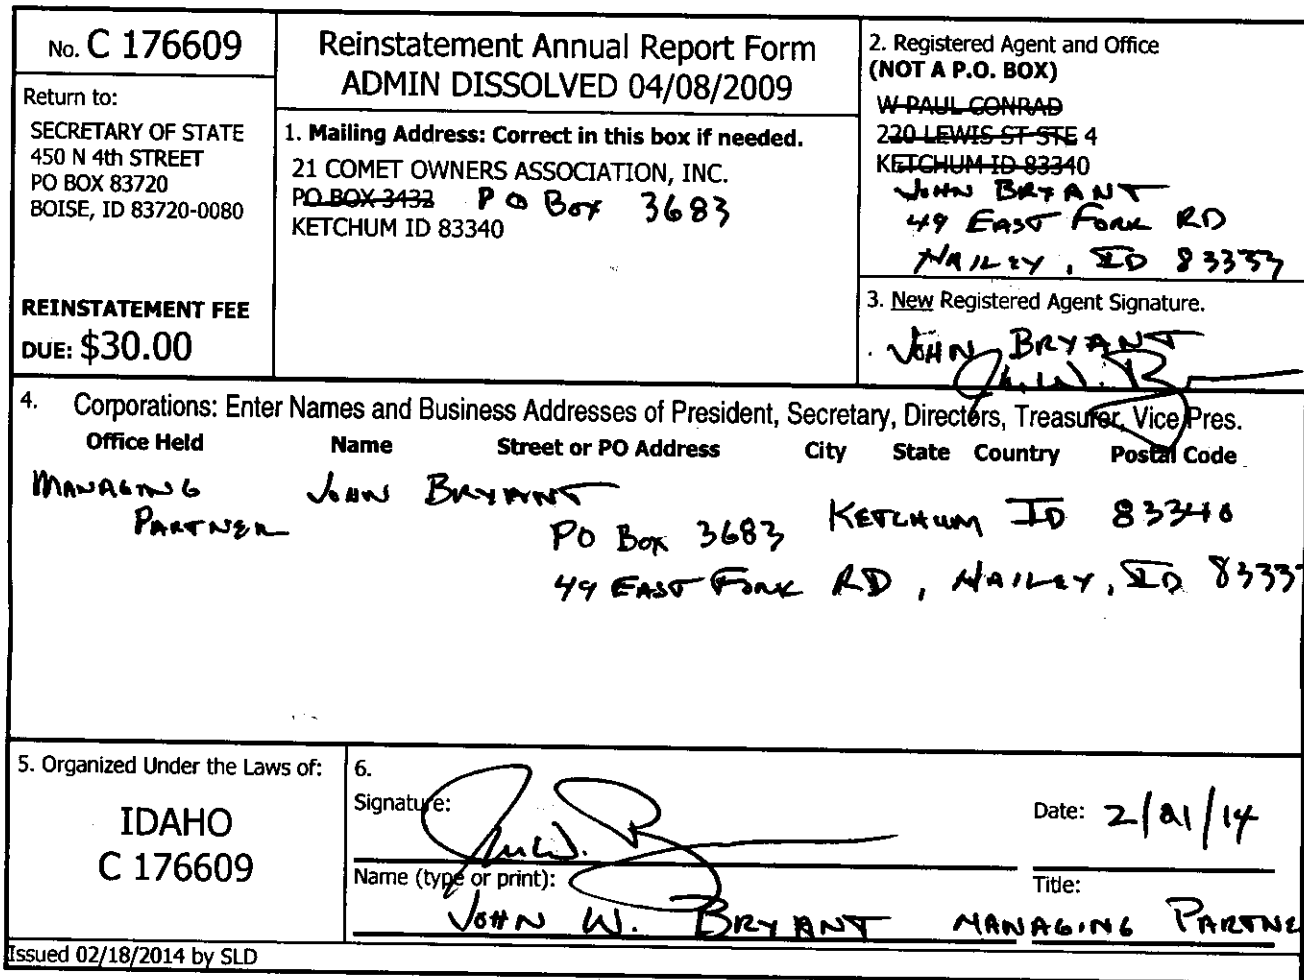 No. C 176609
Return to:
SECRETARY OF STATE
450 N 4th STREET
PO BOX 83720
BOISE, ID 83720-0080
REINSTATEMENT FEE
DUE: $30.00
Reinstatement Annual Report Form
ADMIN DISSOLVED 04/08/2009
1. Mailing Address: Correct in this box if needed.
21 COMET OWNERS ASSOCIATION, INC.
PO BOX 3432 PO Box 3683
KETCHUM ID 83340
2. Registered Agent and Office
(NOT A P.O. BOX)
W PAUL CONRAD
220 LEWIS ST STE 4
KETCHUM ID 83340
JOHN BRYANT
49 EAST FORK RD
HAILEY, ID 83333
3. New Registered Agent Signature.
JOHN BRYANT
4. Corporations: Enter Names and Business Addresses of President, Secretary, Directors, Treasurer, Vice Pres.
Office Held Name Street or PO Address City State Country Postal Code
MANAGING JOHN BRYANT
PARTNER PO Box 3683 KETCHUM ID 83340
49 EAST FORK RD, HAILEY, ID 8333
5. Organized Under the Laws of:
IDAHO
C 176609
6.
Signature:
Date: 2/21/14
Name (type or print):
Title:
JOHN W. BRYANT MANAGING PARTNE
Issued 02/18/2014 by SLD